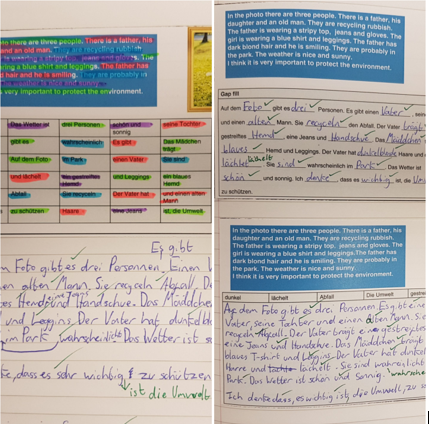 oto there are three people. There is a father, his
and an old man. They are recycling rubbish
girl is wearing a blue shirt and leggings. The father has
and he is smiling. They are probably in
is very important to protect the environment.
Das Wetter ist drei Personen schön und sonnig seine Tochter
gibt es wahrscheinlich Es gibt Das Mädchen trägt
Auf dem Foto im Park einen Vater Sie sind
und lächelt und Leggings ein blaues Hemd
Abfall Sie recyceln Der Vater hat und einen alten Mann
zu schützen Haare eine Jeans ist, die Umwelt
Es gibt
m Foto gibt es drei Personnen. Einen V
en alten Mann. Sie recyceln Abfall. De
Hemd und Handschue. Das Mäddchen
und Leggins. Der Vater hat dunkelb
em Park wahrscheinlich Das Wetter ist s
ke, dass es sehr wichtig zu schützen
ist die Umwelt
In the photo there are three people. There is a father, his
daughter and an old man. They are recycling rubbish.
The father is wearing a stripy top, jeans and gloves. The
girl is wearing a blue shirt and leggings. The father has
dark blond hair and he is smiling. They are probably in
the park. The weather is nice and sunny.
I think it is very important to protect the environment.
Gap fill
Auf dem Foto gibt es drei Personen. Es gibt einen Vater, seine
und einen alten Mann. Sie recyceln den Abfall. Der Vater trägt
gestreiftes Hemd, eine Jeans und Handschue. Das Mäddchen
blaues Hemd und Leggings. Der Vater hat dunkelblonde Haare und
lächelt. Sie sind wahrscheinlich im Park. Das Wetter ist
schön und sonnig. Ich denke dass es wichtig ist, die Um
zu schützen.
In the photo there are three people. There is a father, his
daughter and an old man. They are recycling rubbish.
The father is wearing a stripy top, jeans and gloves. The
girl is wearing a blue shirt and leggings. The father has
dark blond hair and he is smiling. They are probably in
the park. The weather is nice and sunny.
I think it is very important to protect the environment.
dunkel lächelt Abfall Die Umwelt gestrei
Auf dem Foto gibt es drei Personen Es gibt eine
Vater, seine Tochter und einen alten Mann. Sie
recyceln Abfall. Der Vater trägt
eine Jeans und Handschue. Das Mäddchen trägt
blaues T-shirt und Leggins. Der Vater hat dunkel
Harre und lächelt. Sie sind
Park. Das Wetter ist schön und Sonnig.
Ich denke dass, es wichtig ist, die Umwelt, zu s